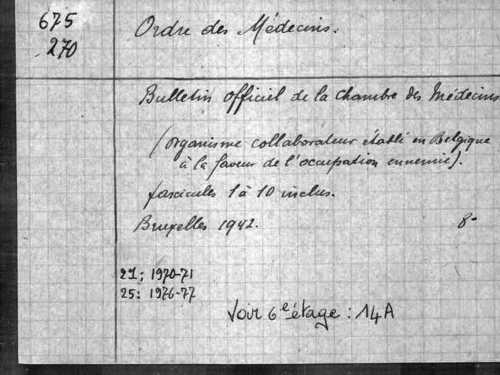 675
270
Ordre des Médecins.
Bulletin officiel de la Chambre des Médecins
(organisme collaborateur établi en Belgique
à la faveur de l'occupation ennemie).
fascicules 1 à 10 inclus.
Bruxelles 1942. 8°
21: 1970-71
25: 1976-77
Voir 6e étage : 14A